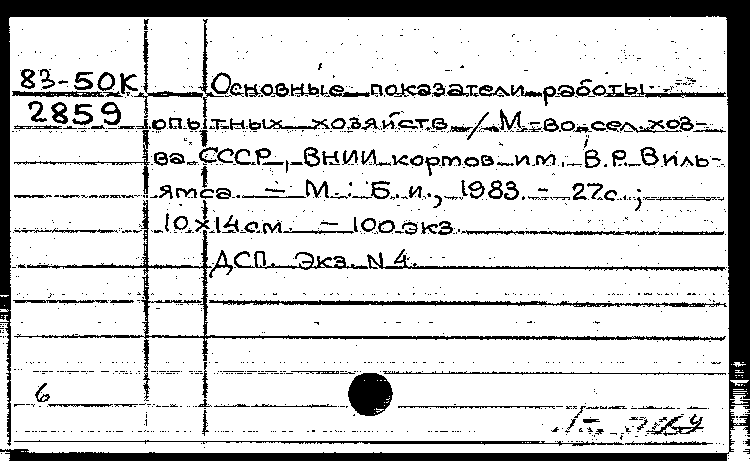 83-50К Основные показатели работы
2859 опытных хозяйств / М-во сел. хоз-
ва СССР, ВНИИ кормов им. В.Р. Виль-
ямса. - М.: Б.и., 1983. - 27с.;
10х14см. - 100экз.
ДСП. Экз. N 4.
6